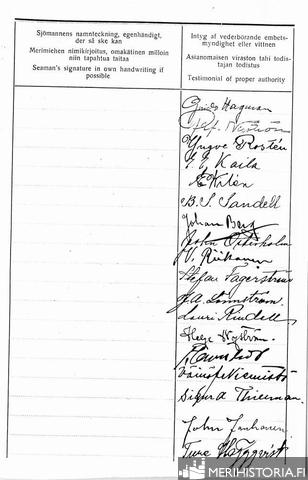 Sjömannens namnteckning, egenhändigt,
der så ske kan
Merimiehen nimikirjoitus, omakätinen milloin
niin tapahtua taitaa
Seaman's signature in own handwriting if
possible
Intyg af vederbörande embets-
myndighet eller vittnen
Asianomaisen viraston tahi todis-
tajan todistus
Testimonial of proper authority
Hagman
Nyström
Yngve Rostén
Kaila
B. S. Sandell
Johan Berg
John Cederholm
V. Riikonen
Stefan Fagerström
J. A. Lönnström
Lauri Rindell
Helge Nyström
Väinö Nieministö
Sigurd Thieman
John Janhunen
Ture Häggqvist
MERIHISTORIA.FI